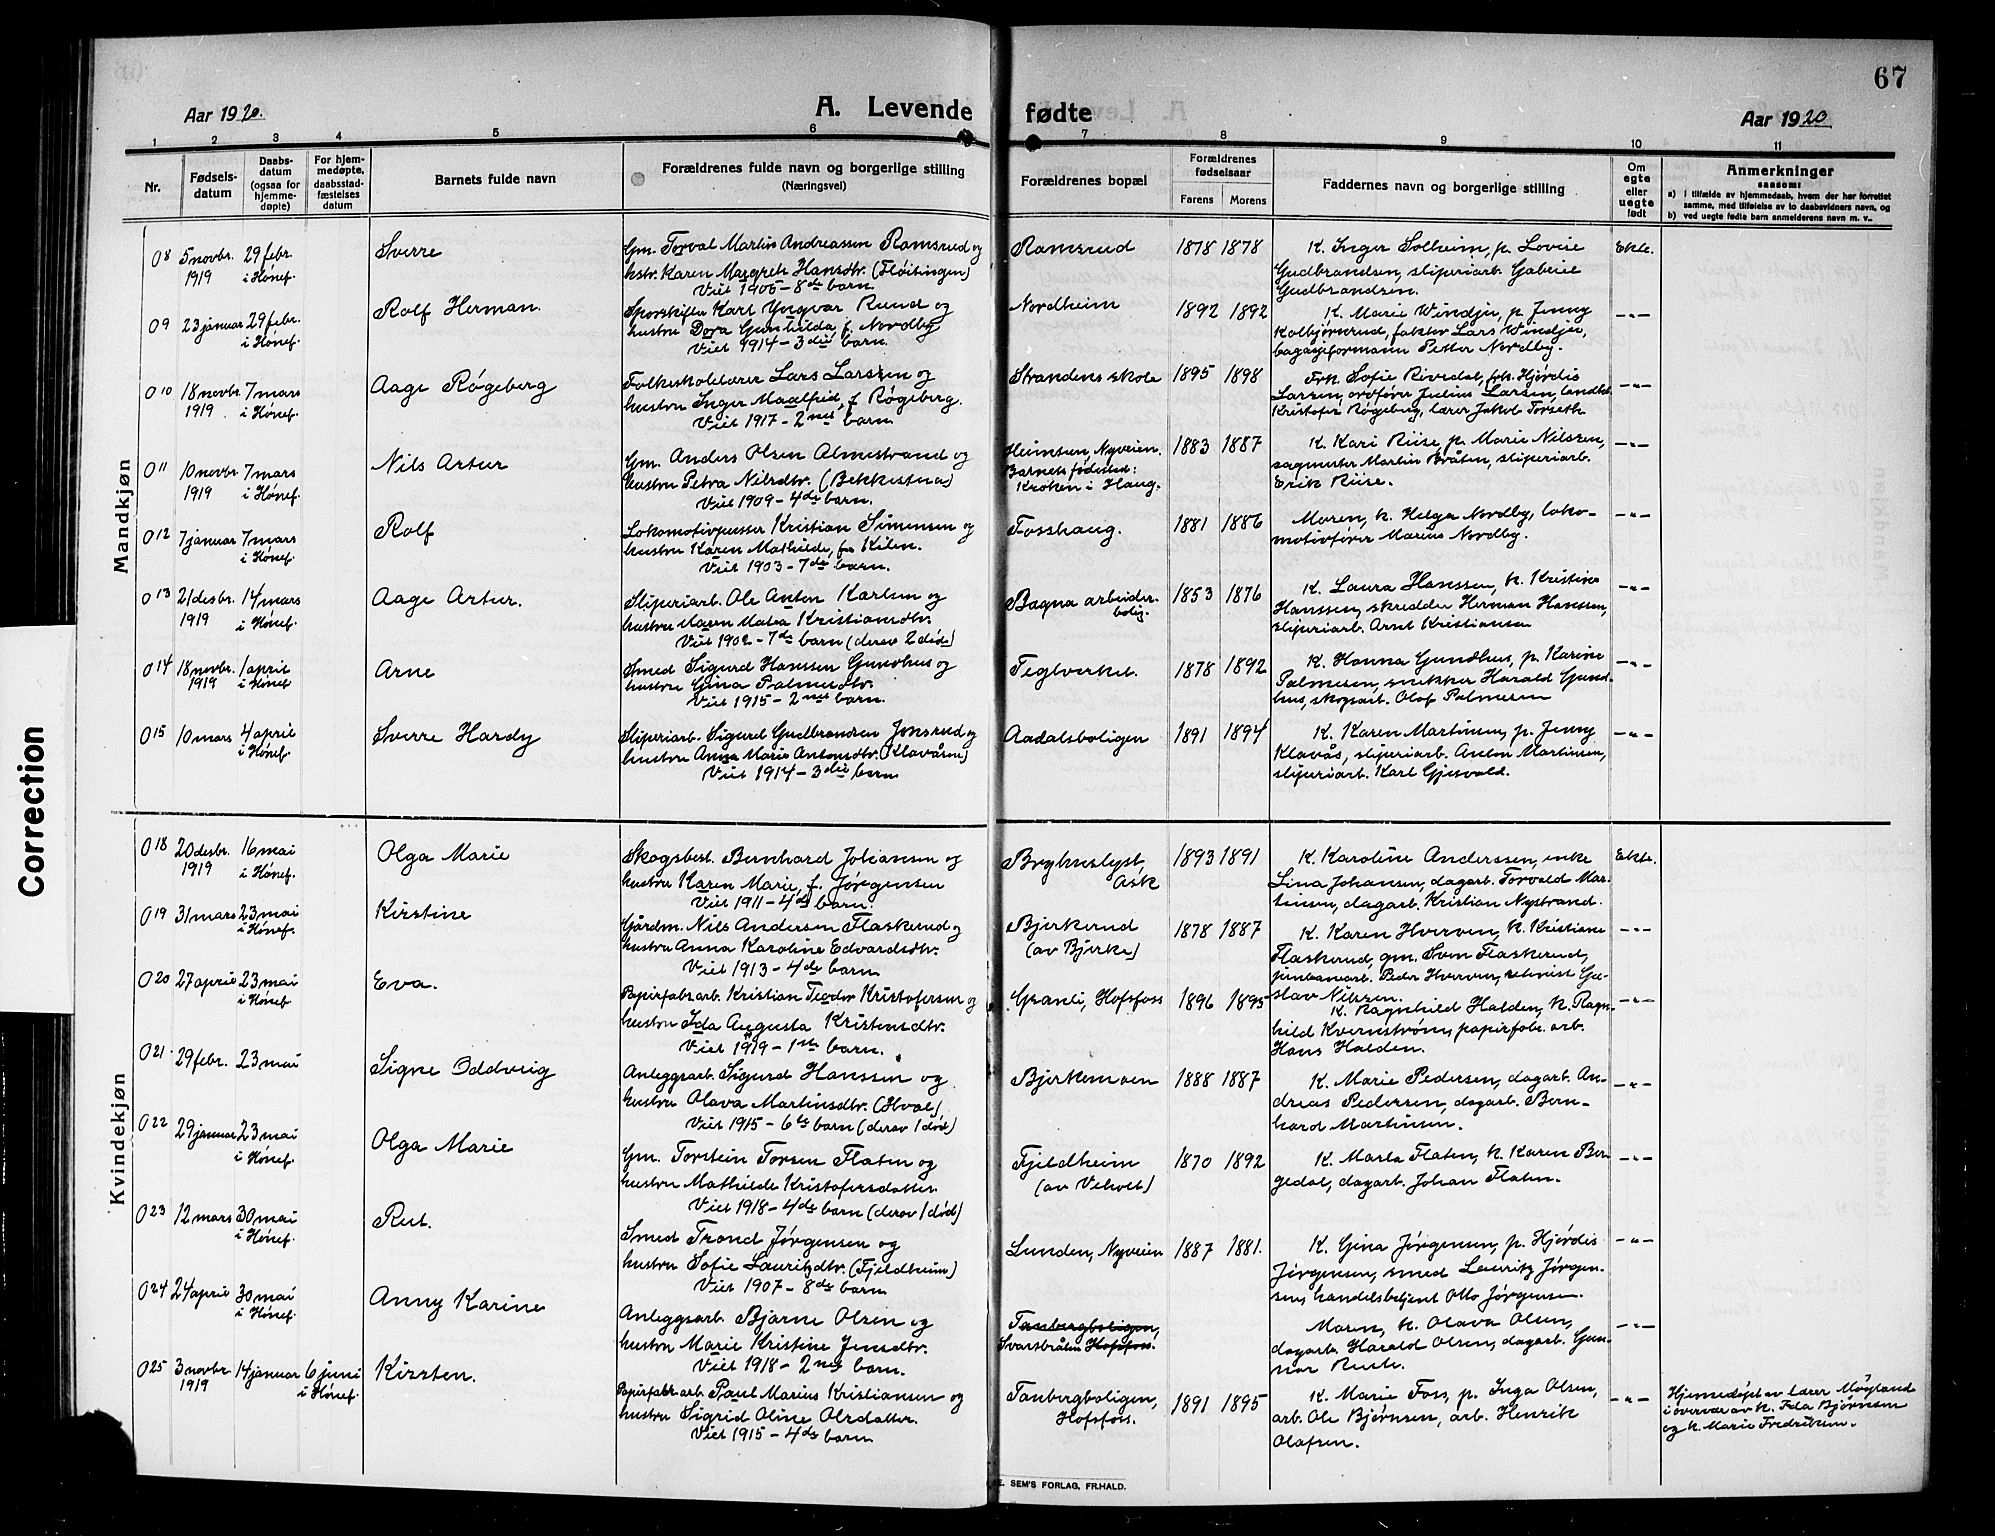 67
Aar 1920.
A. Levende
fødte
Aar 1920
1 2 3 4 5 6 7 8 9 10 11
Nr.
Fødsels-
datum
Daabs-
datum
(ogsaa for
hjemme-
døpte)
For hjem-
medøpte,
daabsstad-
fæstelses
datum
Barnets fulde navn
Forældrenes fulde navn og borgerlige stilling
(Næringsvei)
Forældrenes bopæl
Forældrenes
fødselsaar
Farens
Morens
Faddernes navn og borgerlige stilling
Om
egte
eller
uegte
født
Anmerkninger
saasom:
a) i tilfælde av hjemmedaab, hvem der har forrettet
samme, med tilføielse av to daabsvidners navn, og
b) ved uegte fødte barn anmelderens navn m. v..
Mandkjøn
08 5 novbr. 29 febr.
1919 i Hønef.
Sverre
Gm. Torval Martin Andreassen Ramsrud og
hstr. Karen Margreth Hansdtr. (Fløitingen)
Viet 1905 - 8de barn.
Ramsrud
1878 1878
K. Inger Solheim, p. Lovise
Gudbrandsen, sliperiarb. Gabriel
Gudbrandsen.
Ekte.
09 23 januar 29 febr.
i Hønef.
Rolf Herman.
Sporskifter Karl Yngvar Ruud og
hustru Dora Gunhilda, f. Nordby
Viet 1914 - 3die barn.
Nordheim
1892 1892
K. Marie Windju, p. Jenny
Kolbjørnsrud, faktor Lars Windju,
bagageformann Petter Nordby.
-"-
010 18 novbr. 7 mars
1919. i Hønef.
Aage Røgeberg
Folkeskolelærer Lars Larsen og
hustru Inger Maalfrid, f. Røgeberg.
Viet 1917 - 2net barn.
Strandens skole
1895 1898
Frk. Sofie Rivedal, frk. Hjørdis
Larsen, ordfører Julius Larsen, landh.
Kristofer Røgeberg, lærer Jakob Torseth
-"-
011 10 novbr 7 mars
1919 i Hønef.
Nils Artur
Gm. Anders Olsen Almestrand og
hustru Petra Nilsdtr. (Bekkestua)
Viet 1909 - 4de barn.
Heimtun, Nyveien.
Barnets fødested:
Kroken i Haug.
1883 1887
K. Kari Riise, p. Marie Nilssen,
sagmester Martin Bråten, sliperiarb.
Erik Riise.
-"-
012 7 januar 7 mars
i Hønef.
Rolf
Lokomotivpusser Kristian Simensen og
hustru Karen Mathilde, fra Kilen.
Viet 1903 - 7de barn.
Fosshaug.
1881 1886
Moren, k. Helga Nordby, loko-
motivfører Marius Nordby.
-"-
013 21 desbr. 14 mars
1919 i Hønef.
Aage Artur.
Sliperiarb. Ole Anton Karlsen og
hustru Maren Matea Kristiansdtr.
Viet 1902 - 7de barn (derav 2 døde)
Bagna arbeider-
bolig.
1853 1876
K. Laura Hanssen, k. Kristine
Hanssen, skredder Herman Hanssen,
sliperiarb. Arnt Kristiansen
-"-
014 18 novbr. 1 april
1919 i Hønef
Arne
Smed Sigurd Hanssen Gundhus og
hustru Gina Palmesdtr.
Viet 1915 - 2net barn.
Teglverket.
1878 1892
K. Hanna Gundhus, p. Karine
Palmesen, snekker Harald Gund-
hus, skogsarb. Olaf Palmesen
-"-
015 10 mars 4 april
i Hønef.
Sverre Hardy
Sliperiarb. Sigurd Gudbrandsen Jonsrud og
hustru Anna Marie Antonsdtr. (Klavåsen)
Viet 1914 - 3die barn
Aadalsboligen
1891 1894
K. Karen Martinsen, p. Jenny
Klavås, sliperiarb. Anton Martinsen,
sliperiarb. Karl Gjesvold.
-"-
Kvindekjøn
018 20 desbr. 16 mai
1919 i Hønef.
Olga Marie
Skogsbest. Bernhard Johansen og
hustru Karen Marie, f. Jørgensen
Viet 1911 - 4de barn.
Bryhnslyst,
Ask
1893 1891
K. Karoline Anderssen, enke
Lina Johansen, dagarb. Torvald Mar-
tinsen, dagarb. Kristian Nystrand.
Ekte.
019 31 mars 23 mai
i Hønef.
Kirstine
Gårdm. Nils Andersen Flaskerud og
hustru Anna Karoline Edvardsdtr.
Viet 1913 - 4de barn
Bjerkerud
(av Bjerke)
1878 1887
K. Karen Hverven, k. Kristiane
Flaskerud, gm. Sven Flaskerud,
jernbanearb. Peder Hverven, Gu-
stav Nilssen.
-"-
020 27 april 23 mai
i Hønef
Eva.
Papirfabr.arb. Kristian Teodor Kristofersen og
hustru Ida Augusta Kristensdtr.
Viet 1919 - 1ste barn.
Granli, Hofsfoss
1896 1895
K. Ragnhild Halden, k. Ragn-
hild Kvernstrøm, papirfabr. arb.
Hans Halden.
-"-
021. 29 febr. 23 mai
Signe Oddveig
Anleggsarb. Sigurd Hanssen og
hustru Olava Martinsdtr. (Hval)
Viet 1915 - 6te barn (derav 1 død)
Bjerkemoen
1888 1887
K. Marie Pedersen, dagarb. An-
dreas Pedersen, dagarb. Bern-
hard Martinsen.
-"-
022 29 januar 23 mai
i Hønef.
Olga Marie
Gm. Torstein Torsen Flaten og
hustru Mathilde Kristofersdatter.
Viet 1918 - 4de barn (derav 1 død)
Fjeldheim
(av Veholt)
1870 1892
K. Marta Flaten, k. Karen Ber-
gedal, dagarb. Johan Flaten.
-"-
023 12 mars 30 mai
i Hønef.
Rut.
Smed Trond Jørgensen og
hustru Sofie Lauritzdtr. (Fjeldheim)
Viet 1907 - 8de barn
Lunden, Nyveien
1887 1881.
K. Gina Jørgensen, p. Hjørdis
Jørgensen, smed Lauritz Jørgen-
sen, handelsbetjent Otto Jørgensen.
-"-
024 24 april 30 mai
i Hønef.
Anny Karine
Anleggsarb. Bjarne Olsen og
hustru Marie Kristine Jensdtr.
Viet 1918 - 2net barn.
Tanbergboligen,
Svartbråten Hofsfoss.
Moren, k. Olava Olsen,
dagarb. Harald Olsen, dagarb. Gun-
nar Rust.
-"-
025 3 novbr. 14 januar 6 juni
1919 i Hønef.
Kirsten.
Papirfabr.arb. Paul Marius Kristiansen og
hustru Sigrid Oline Olsdatter.
Viet 1915 - 4de barn
Tanbergboligen,
Hofsfoss.
1891 1895
K. Marie Foss, p. Inga Olsen,
arb. Ole Bjørnsen, arb. Henrik
Olafsen.
-"-
Hjemmedøpt av lærer Møgland
i overvær av k. Ida Bjørnsen
og k. Marie Fredriksen.
SEM'S FORLAG, FR.HALD.
Correction